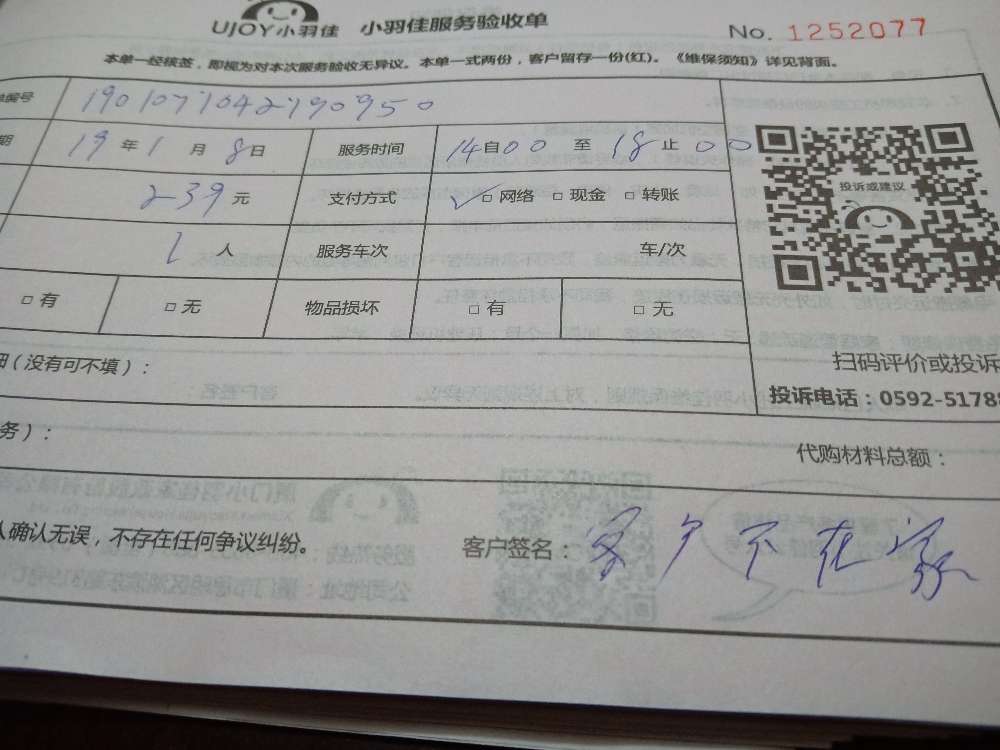 UJOY小羽佳 小羽佳服务验收单 No. 1252077
本单一经核签，即视为对本次服务验收无异议。本单一式两份，客户留存一份(红)。《维保须知》详见背面。
编号 1901071042790950
期 19 年 1 月 8 日 服务时间 14 自 00 至 18 止 00
239 元 支付方式 ✓□ 网络 □ 现金 □ 转账
投诉或建议
1 人 服务车次 车/次
□ 有 □ 无 物品损坏 □ 有 □ 无
（没有可不填）： 扫码评价或投诉
投诉电话：0592-5178
务）： 代购材料总额：
人确认无误，不存在任何争议纠纷。 客户签名：客户不在家